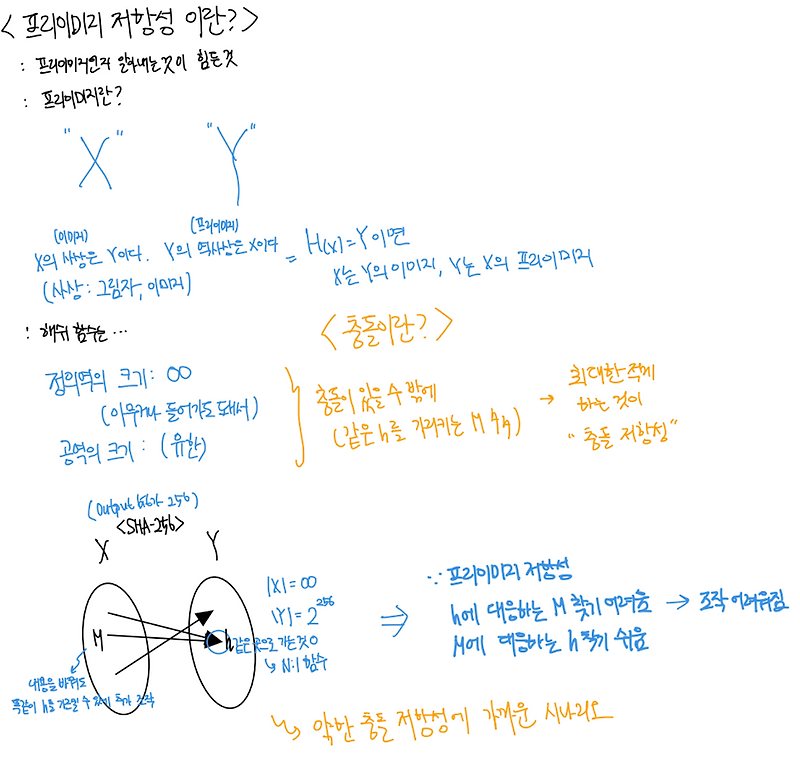 <프리이미지 저항성 이란?>
: 프리이미지인지 알아내는 것이 힘든 것
: 프리이미지란?
"X" "Y"
(이미지) (프리이미지)
X의 사상은 Y이다. Y의 역사상은 X이다 = H(x)=Y이면
(사상: 그림자, 이미지) X는 Y의 이미지, Y는 X의 프리이미지
! 해쉬 함수는… <충돌이란?>
정의역의 크기: ∞
(아무거나 들어가도 돼서)
공역의 크기: (유한)
충돌이 있을 수 밖에
(같은 h를 가리키는 M
→ 최대한 적게
하는 것이
"충돌 저항성"
(Output bit가 256)
<SHA-256>
X Y
|X|=∞
|Y|=2^256
M h
같은 곳으로 가는 것이
↳ N:1 함수
내용을 바꿔도
똑같이 h를 가리킬 수 있게
조작
⇒ ∵ 프리이미지 저항성
h에 대응하는 M 찾기 어려움 → 조작 어려워짐
M에 대응하는 h 찾기 쉬움
↳ 약한 충돌 저항성에 가까운 시나리오